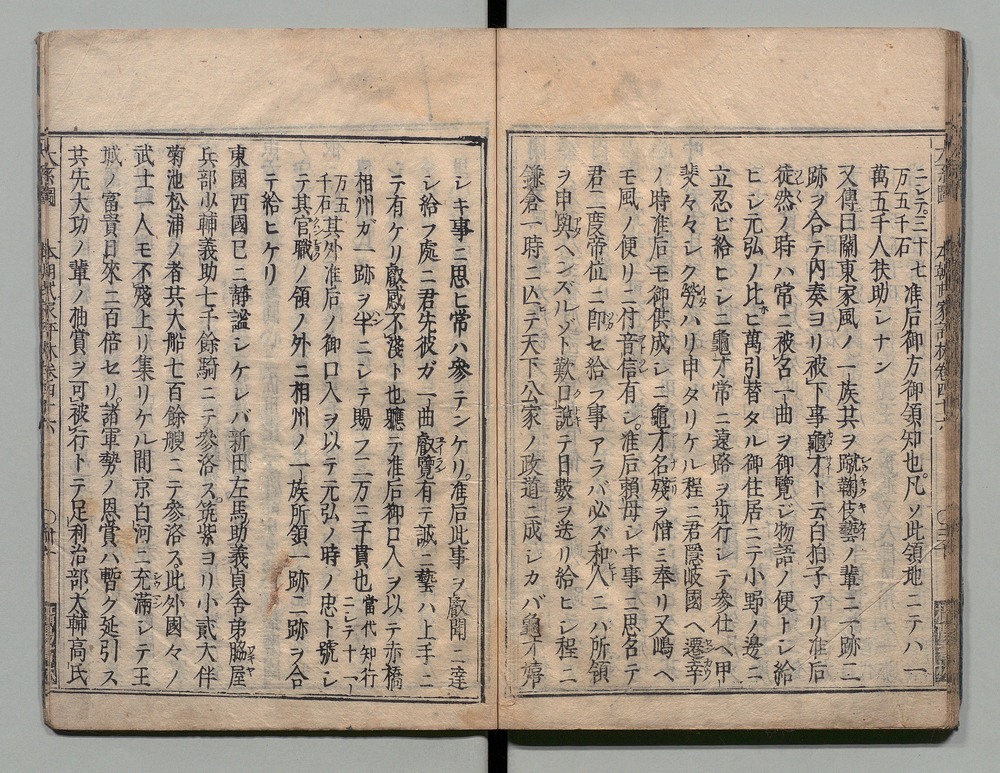 ニシテ三十七准后御方御領知也凡ソ此領地ニテハ一
万五千石
萬五千人扶助シナン
又傳曰關東家風ノ一族其ヲ蹴鞠伎藝ノ輩ニ一跡二
跡ヲ合テ内奏ヨリ被下事龜才ト云白拍子アリ准后
徒然ノ時ハ常ニ被名一曲ヲ御覽ジ物語ノ便トシ給
ヒシ元弘ノ比ヒ萬引替タル御住居ニテ小野ノ邊ニ
立忍ビ給ヒシニ龜才常ニ遠路ヲ歩行シテ參仕ヘ甲
斐々々シク勞ハリ申タリケル程ニ君隱岐國ヘ遷幸
ノ時准后モ御供成シニ龜才名殘ヲ惜ミ奉リ又嶋ヘ
モ風ノ便リニ付音信有シ准后頼母シキ事ニ思名テ
君二度帝位ニ即セ給フ事アラバ必ズ和人ニハ所領
ヲ申與ヘンズルゾト歎口説テ日數ヲ送リ給ヒシ程ニ
鎌倉一時ニ亡テ天下公家ノ政道ニ成シカバ龜才嬉
シキ事ニ思ヒ常ハ參テンケリ准后此事ヲ叡聞ニ達
シ給フ處ニ君先彼ガ一曲叡覽有テ誠ニ藝ハ上手ニ
テ有ケリ叡感不淺ト也軈テ准后御口入ヲ以テ赤橋
相州ガ一跡ヲ半ニシテ賜フ二万三千貫也當代知行ニシテ十一
万五千石其外准后ノ御口入ヲ以テ元弘ノ時ノ忠ト號シ
テ其官職ノ領ノ外ニ相州ノ一族所領一跡二跡ヲ合
テ給ヒケリ
東國西國巳ニ靜謐シケレバ新田左馬助義貞舍弟脇屋
兵部少輔義助七千餘騎ニテ參洛ス筑紫ヨリ小貳大伴
菊池松浦ノ者其大船七百餘艘ニテ參洛ス此外國々ノ
武士一人モ不殘上リ集リケル間京白河ニ充滿シテ王
城ノ富貴日來ニ百倍セリ諸軍勢ノ恩賞ハ暫ク延引ス
其先大功ノ輩ノ抽賞ヲ可被行トテ足利治部大輔高氏